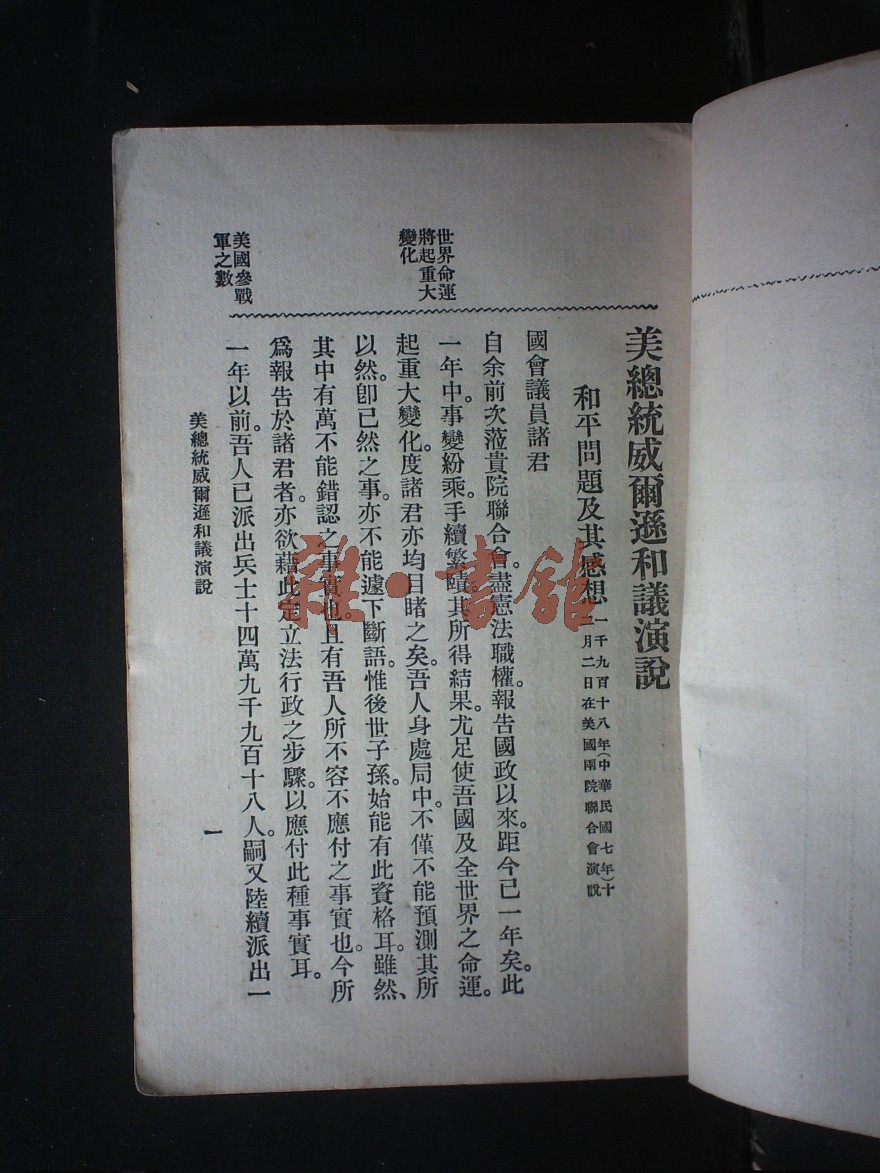 美總統威爾遜和議演說
和平問題及其感想
一千九百十八年(中華民國七年)十
二月二日在美國兩院聯合會演說
國會議員諸君
自余前次蒞貴院聯合會。盡憲法職權。報告國政以來。距今已一年矣。此
一年中。事變紛乘。手續繁賾。其所得結果。尤足使吾國及全世界之命運。
起重大變化。度諸君亦均目睹之矣。吾人身處局中。不僅不能預測其所
以然。卽已然之事。亦不能遽下斷語。惟後世子孫。始能有此資格耳。雖然、
其中有萬不能錯認之事實也。且有吾人所不容不應付之事實也。今所
爲報告於諸君者。亦欲藉此定立法行政之步驟。以應付此種事實耳。
一年以前。吾人已派出兵士十四萬九千九百十八人。嗣又陸續派出一
世界命運
將起重大
變化
美國參戰
軍之數
美總統威爾遜和議演說
一
雜·書館